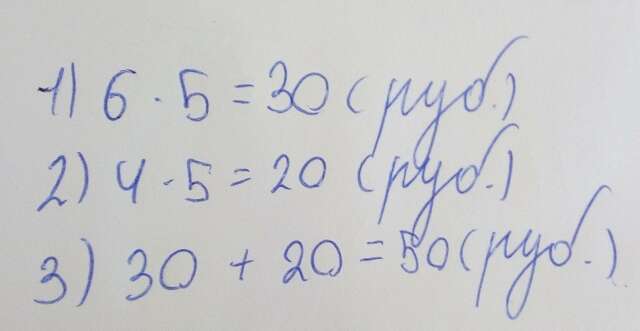 1) 6 · 5 = 30 (руб.)
2) 4 · 5 = 20 (руб.)
3) 30 + 20 = 50 (руб.)